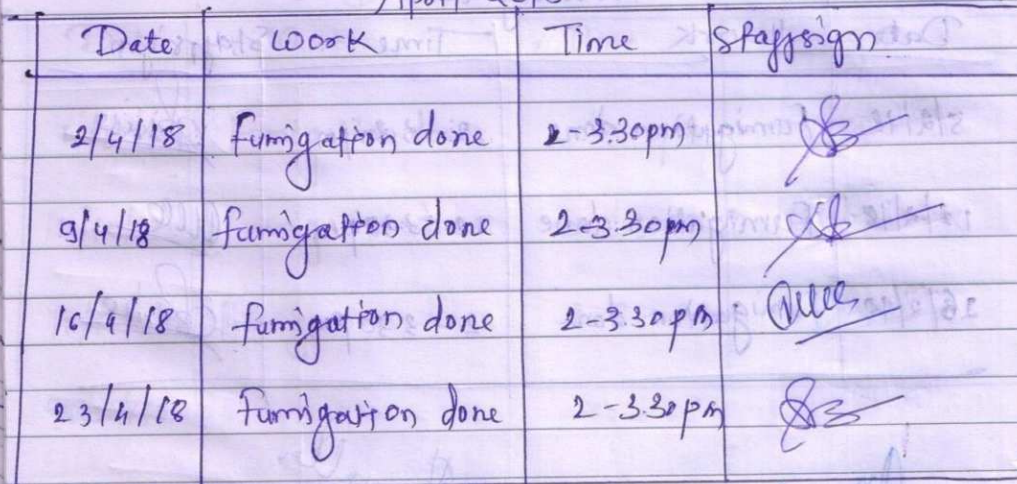 Date Work Time Staffsign
2/4/18 fumigation done 2-3.30pm
9/4/18 fumigation done 2-3.30pm
16/4/18 fumigation done 2-3.30pm
23/4/18 fumigation done 2-3.30pm